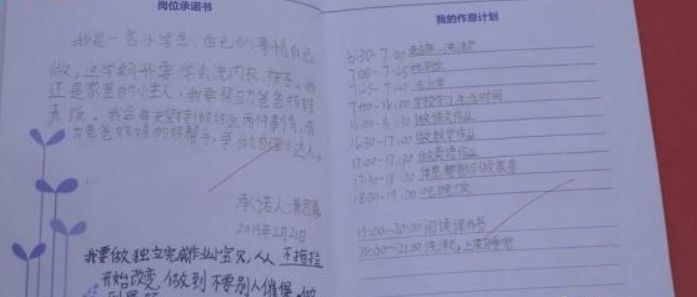 岗位承诺书
我是一名小学生，自己的事情自己
做，这学期开要学会洗内衣、袜子。我
还是家里的小主人，我要帮助爸爸妈妈
煮饭。我会每天坚持做好这两件事情，成
为爸爸妈妈的好帮手，争做自理小达人。
承诺人:黄
2019年2月21日
我要做独立完成作业小宝贝，从不拖拉
开始改变，做到不要别人催促
我的作息计划
6:30-7:00 起床、洗漱
7:00-7:25 吃早餐
7:25-7:40 去上学
7:40-16:00 学校学习生活时间
16:00-16:30 做语文作业
16:30-17:00 做数学作业
17:00-17:30 做英语作业
17:30-18:00 休息、帮助做家务
18:00-19:00 吃晚饭
19:00-20:00 阅读课外书
20:00-21:00 洗漱、上床睡觉